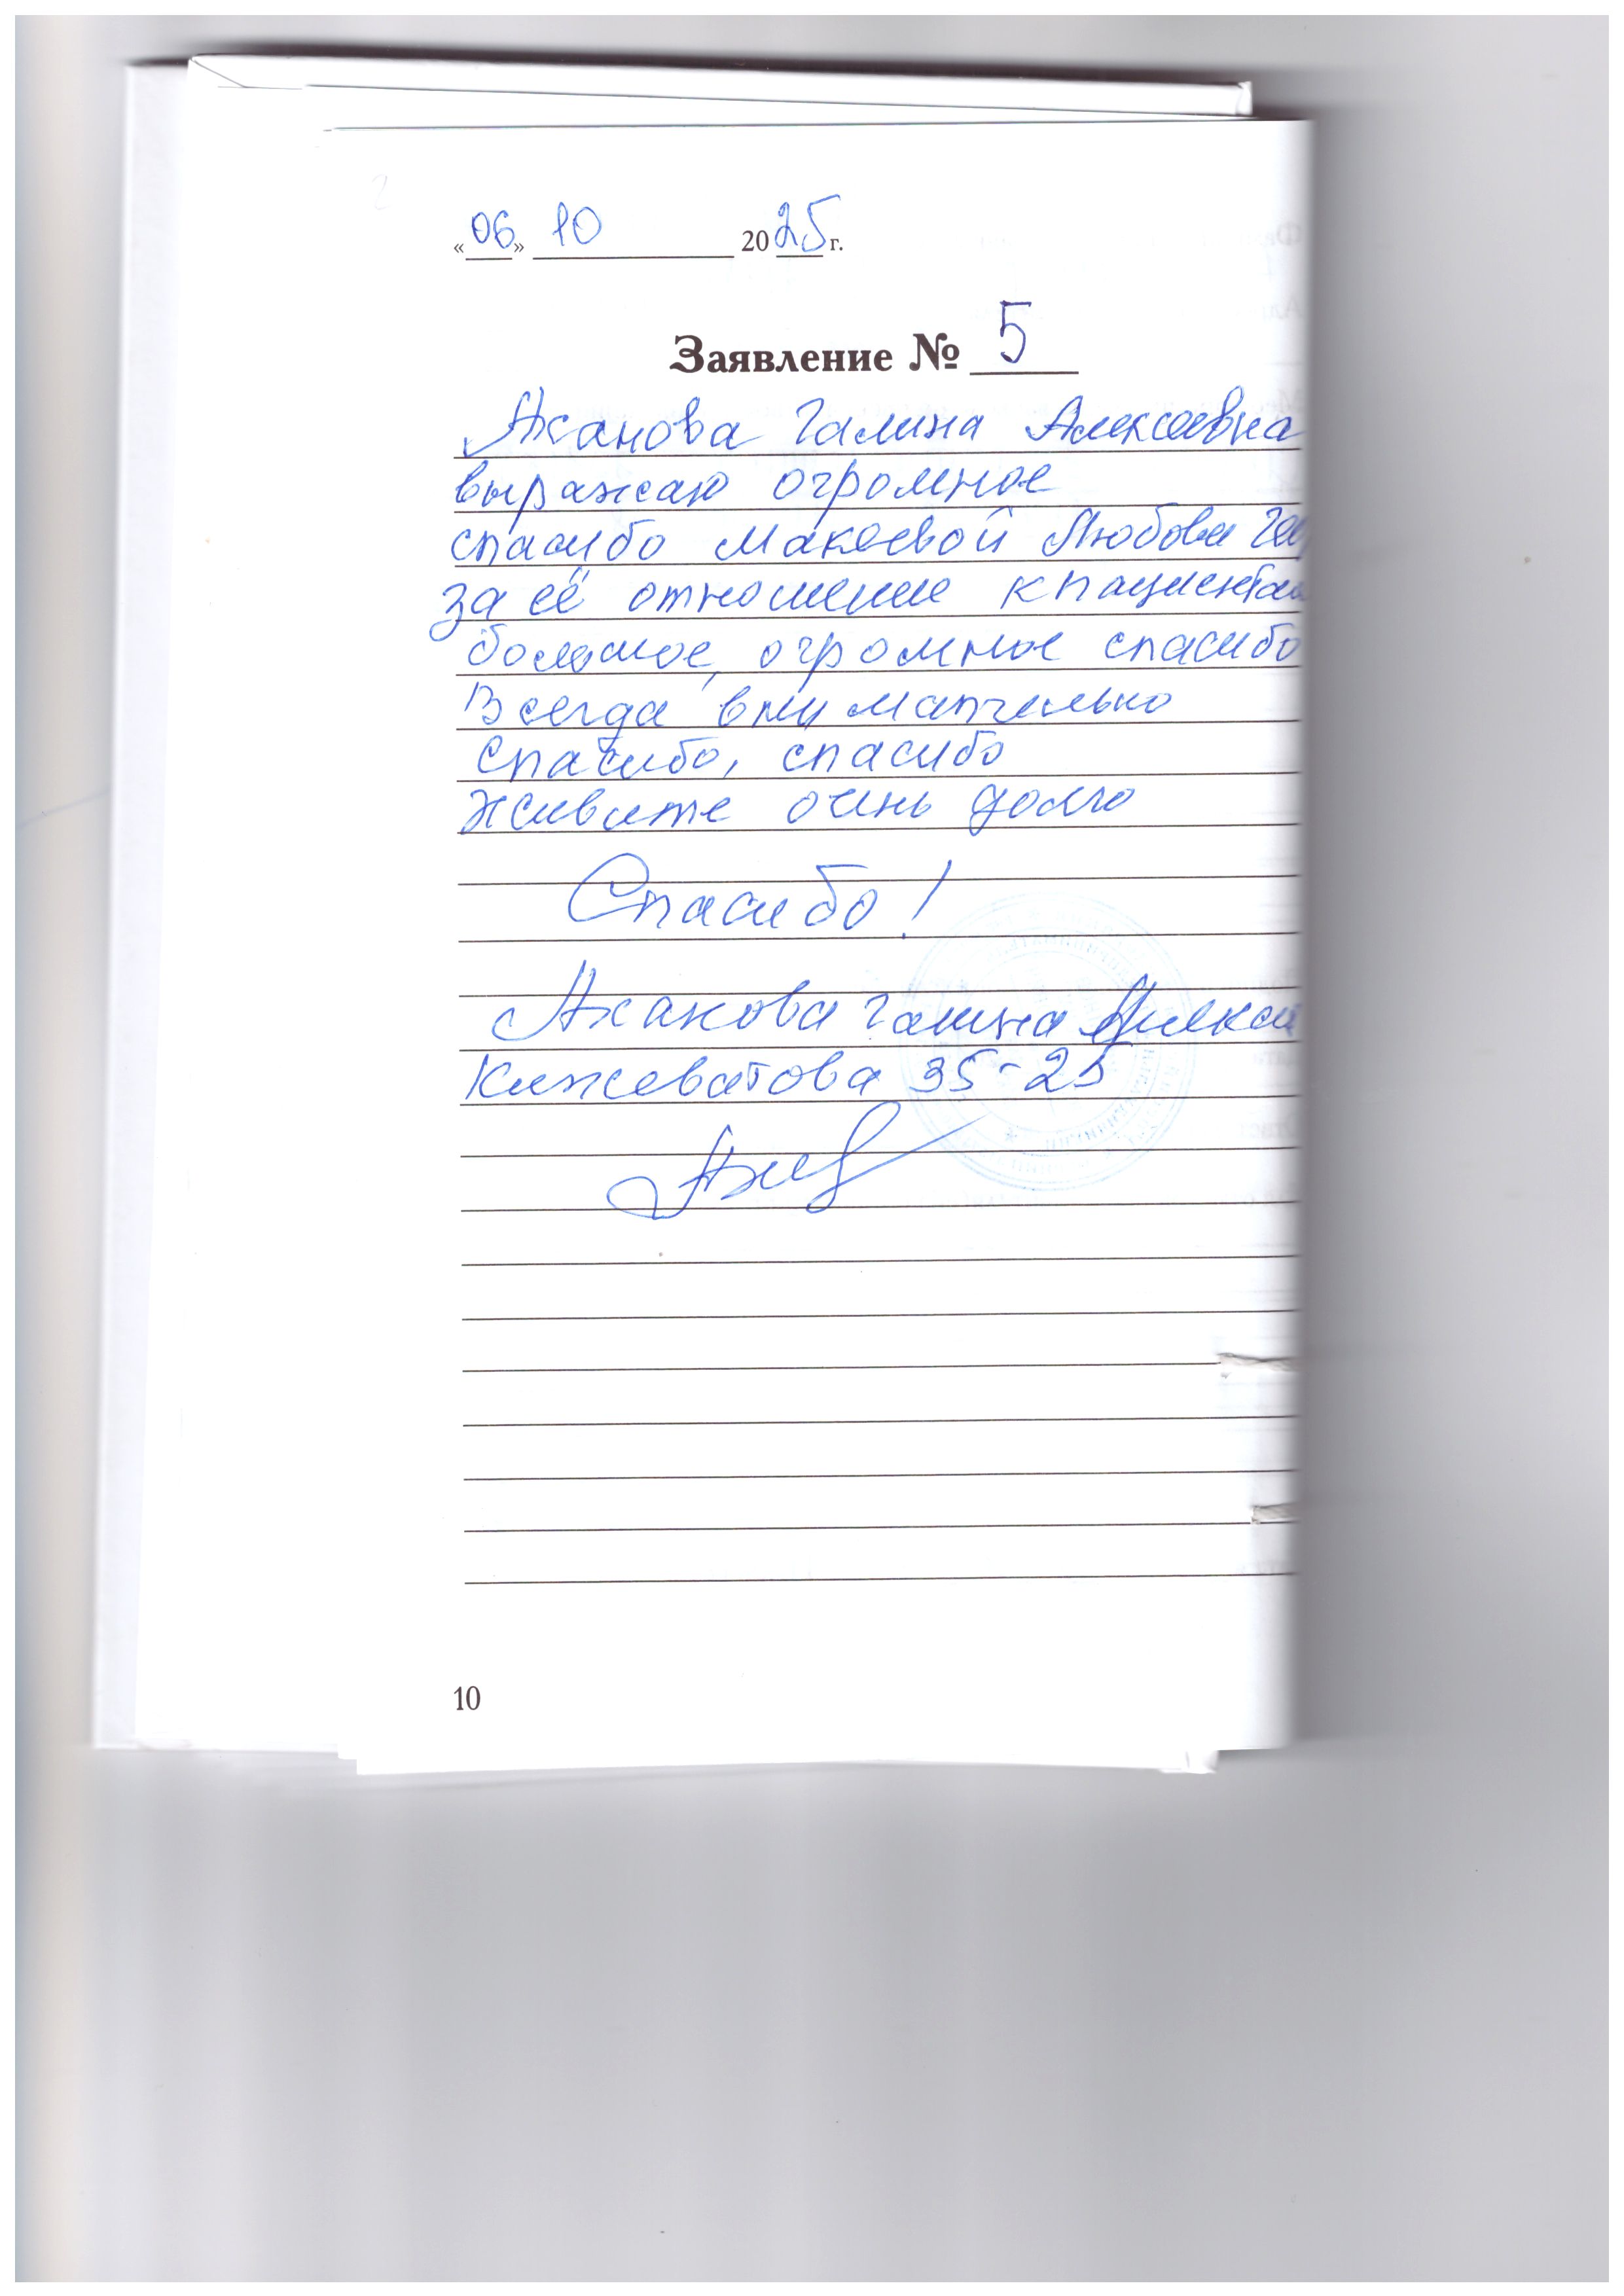 «06» 10 2025 г.
Заявление № 5
Ажанова Галина Алексеевна
выражаю огромное
спасибо Макеевой Любова
за её отношение к пациентам
большое, огромное спасибо
Всегда внимательно
Спасибо, спасибо
Живите очень долго
Спасибо!
Ажанова Галина
Кижеватова 35-25
10